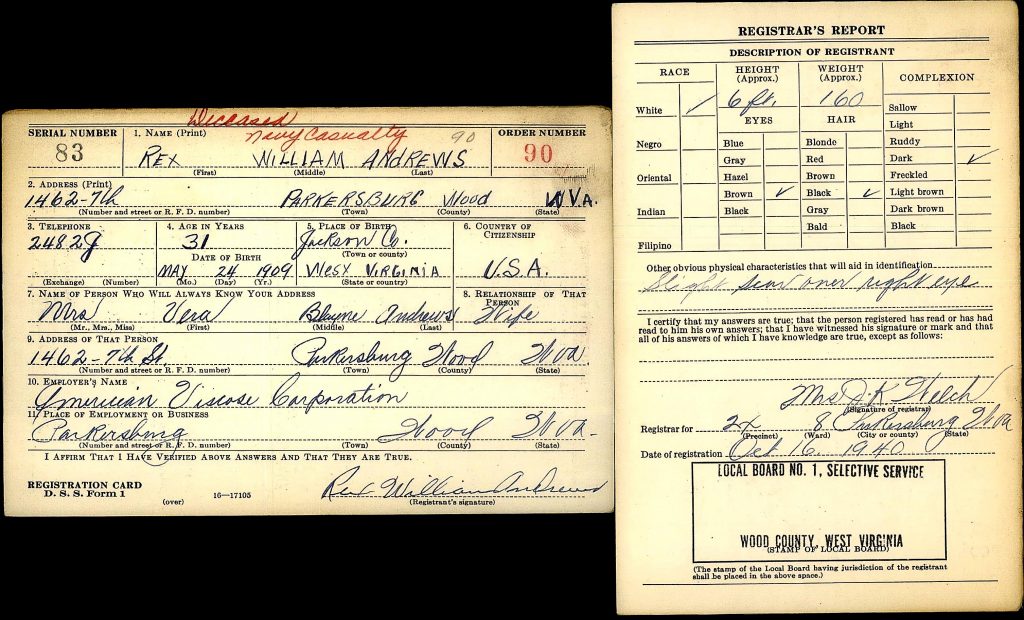 Deceased
Navy Casualty 90
SERIAL NUMBER 1. NAME (Print) ORDER NUMBER
83 REX WILLIAM ANDREWS 90
(First) (Middle) (Last)
2. ADDRESS (Print)
1462-7th PARKERSBURG WOOD W VA.
(Number and street or R. F. D. number) (Town) (County) (State)
3. TELEPHONE 4. AGE IN YEARS 5. PLACE OF BIRTH 6. COUNTRY OF CITIZENSHIP
2482J 31 Jackson Co.
DATE OF BIRTH (Town or county)
MAY 24 1909 WEST VIRGINIA U.S.A.
(Exchange) (Number) (Mo.) (Day) (Yr.) (State or country)
7. NAME OF PERSON WHO WILL ALWAYS KNOW YOUR ADDRESS 8. RELATIONSHIP OF THAT PERSON
Mrs Vera Blayne Andrews Wife
(Mr., Mrs., Miss) (First) (Middle) (Last)
9. ADDRESS OF THAT PERSON
1462-7th St. Parkersburg Wood W va
(Number and street or R. F. D. number) (Town) (County) (State)
10. EMPLOYER'S NAME
American Viscose Corporation
11. PLACE OF EMPLOYMENT OR BUSINESS
Parkersburg Wood W Va-
(Number and street or R. F. D. number) (Town) (County) (State)
I AFFIRM THAT I HAVE VERIFIED ABOVE ANSWERS AND THAT THEY ARE TRUE.
REGISTRATION CARD
D. S. S. Form 1 (over) 16-17105
Rex William Andrews
(Registrant's signature)
REGISTRAR'S REPORT
DESCRIPTION OF REGISTRANT
RACE HEIGHT (Approx.) WEIGHT (Approx.) COMPLEXION
White ✓ 6 ft. 160 Sallow
EYES HAIR Light
Negro Blue Blonde Ruddy
Gray Red Dark ✓
Oriental Hazel Brown Freckled
Brown ✓ Black ✓ Light brown
Indian Black Gray Dark brown
Bald Black
Filipino
Other obvious physical characteristics that will aid in identification
Slight scar over right eye
I certify that my answers are true; that the person registered has read or has had
read to him his own answers; that I have witnessed his signature or mark and that
all of his answers of which I have knowledge are true, except as follows:
Mrs J. K. Welch
(Signature of registrar)
Registrar for 2x 8 Parkersburg W Va
(Precinct) (Ward) (City or county) (State)
Date of registration Oct 16, 1940
LOCAL BOARD NO. 1, SELECTIVE SERVICE
WOOD COUNTY, WEST VIRGINIA
(STAMP OF LOCAL BOARD)
(The stamp of the Local Board having jurisdiction of the registrant
shall be placed in the above space.)